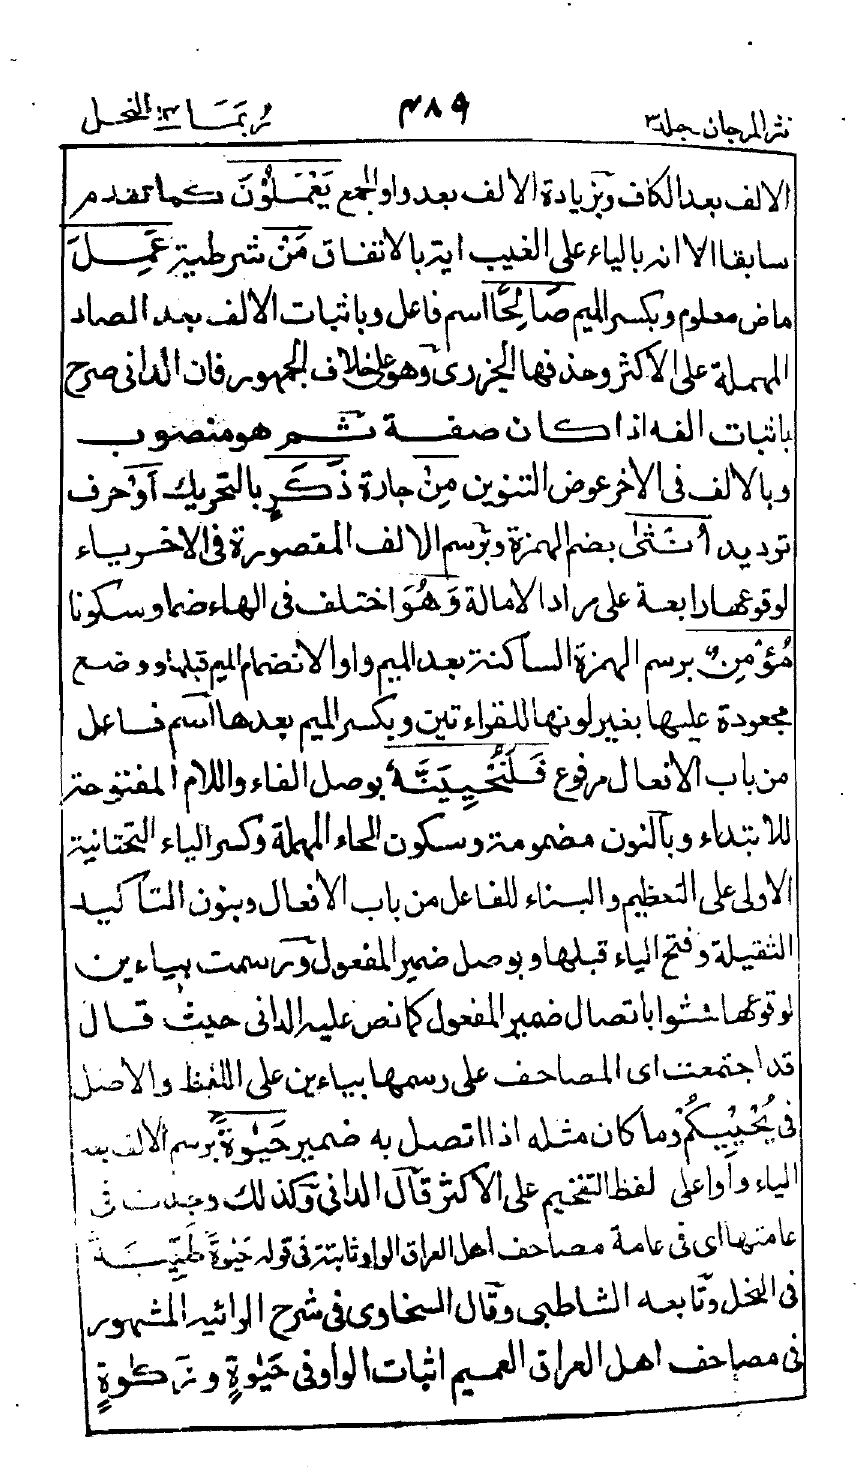 نثر المرجان جلد ٣ ٤٨٩ ربما ١٤ النحل
الالف بعد الكاف وبزيادة الالف بعد واو الجمع يَعْمَلُوْنَ كما تقدم
سابقا الا انه بالياء على الغيب اية بالاتفاق مَنْ شرطية عَمِلَ
ماض معلوم وبكسر الميم صَالِحًا اسم فاعل وباثبات الالف بعد الصاد
المهملة على الاكثر وحذفها الجزرى وهو على خلاف الجمهور فان الدانى صرح
باثبات الفه اذا كان صفة ثم هو منصوب
وبالالف فى الاخر عوض التنوين مِنْ جارة ذَكَرٍ بالتحريك أَوْ حرف
ترديد أُنْثٰى بضم الهمزة وبرسم الالف المقصورة فى الاخر ياء
لوقوعها رابعة على مراد الامالة وَهُوَ اختلف فى الهاء ضما وسكونا
مُؤْمِنٌ برسم الهمزة الساكنة بعد الميم واوا لانضمام الميم قبلها ووضع
مجعودة عليها بغير لونها للقراءتين وبكسر الميم بعدها اسم فاعل
من باب الافعال مرفوع فَلَنُحْيِيَنَّهٗ بوصل الفاء واللام المفتوحة
للابتداء وبالنون مضمومة وسكون الحاء المهملة وكسر الياء التحتانية
الاولى على التعظيم والبناء للفاعل من باب الافعال وبنون التاكيد
الثقيلة وفتح الياء قبلها وبوصل ضمير المفعول ورسمت بياءين
لوقوعها حشوا باتصال ضمير المفعول كما نص عليه الدانى حيث قال
قد اجتمعت اى المصاحف على رسمها بياءين على اللفظ والاصل
فى يُحْيِيْكُمْ وما كان مثله اذا اتصل به ضمير حَيٰوةً برسم الالف بعد
الياء واوا على لفظ التفخيم على الاكثر قال الدانى وكذلك وجدت فى
عامتها اى فى عامة مصاحف اهل العراق الواو ثابتة فى قوله حَيٰوةً طَيِّبَةً
فى النحل وتابعه الشاطبى وقال السخاوى فى شرح الرائية المشهور
فى مصاحف اهل العراق العميم اثبات الواو فى حَيٰوةٍ و زَكٰوةٍ